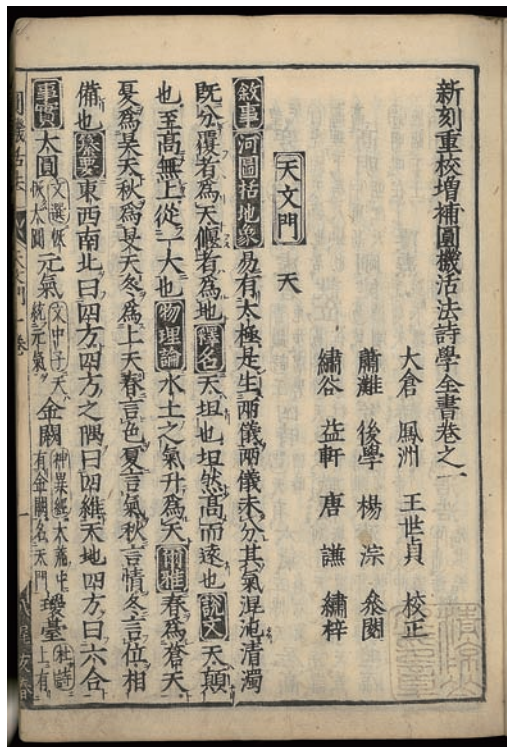 新刻重校增補圓機活法詩學全書卷之一
大倉 鳳洲 王世貞 校正
蕭灘 後學 楊淙 叅閱
繡谷 益軒 唐謙 繡梓
天文門 天
敘事 河圖括地象 易有太極是生兩儀兩儀未分其氣混沌清濁
既分覆者為天偃者為地 釋名 天坦也坦然高而遠也 說文 天顛
也至高無上從一大也 物理論 水土之氣升為天 爾雅 春為蒼天
夏為昊天秋為旻天冬為上天春言色夏言氣秋言情冬言位相
備也 纂要 東西南北曰四方四方之隅曰四維天地四方曰六合
事實 太圓 文選 恢太圓 元氣 文中子天統元氣 金闕 神異經 太蕭中有金闕名天門 瓊臺 杜詩 上有
圓機活法 天文門一卷